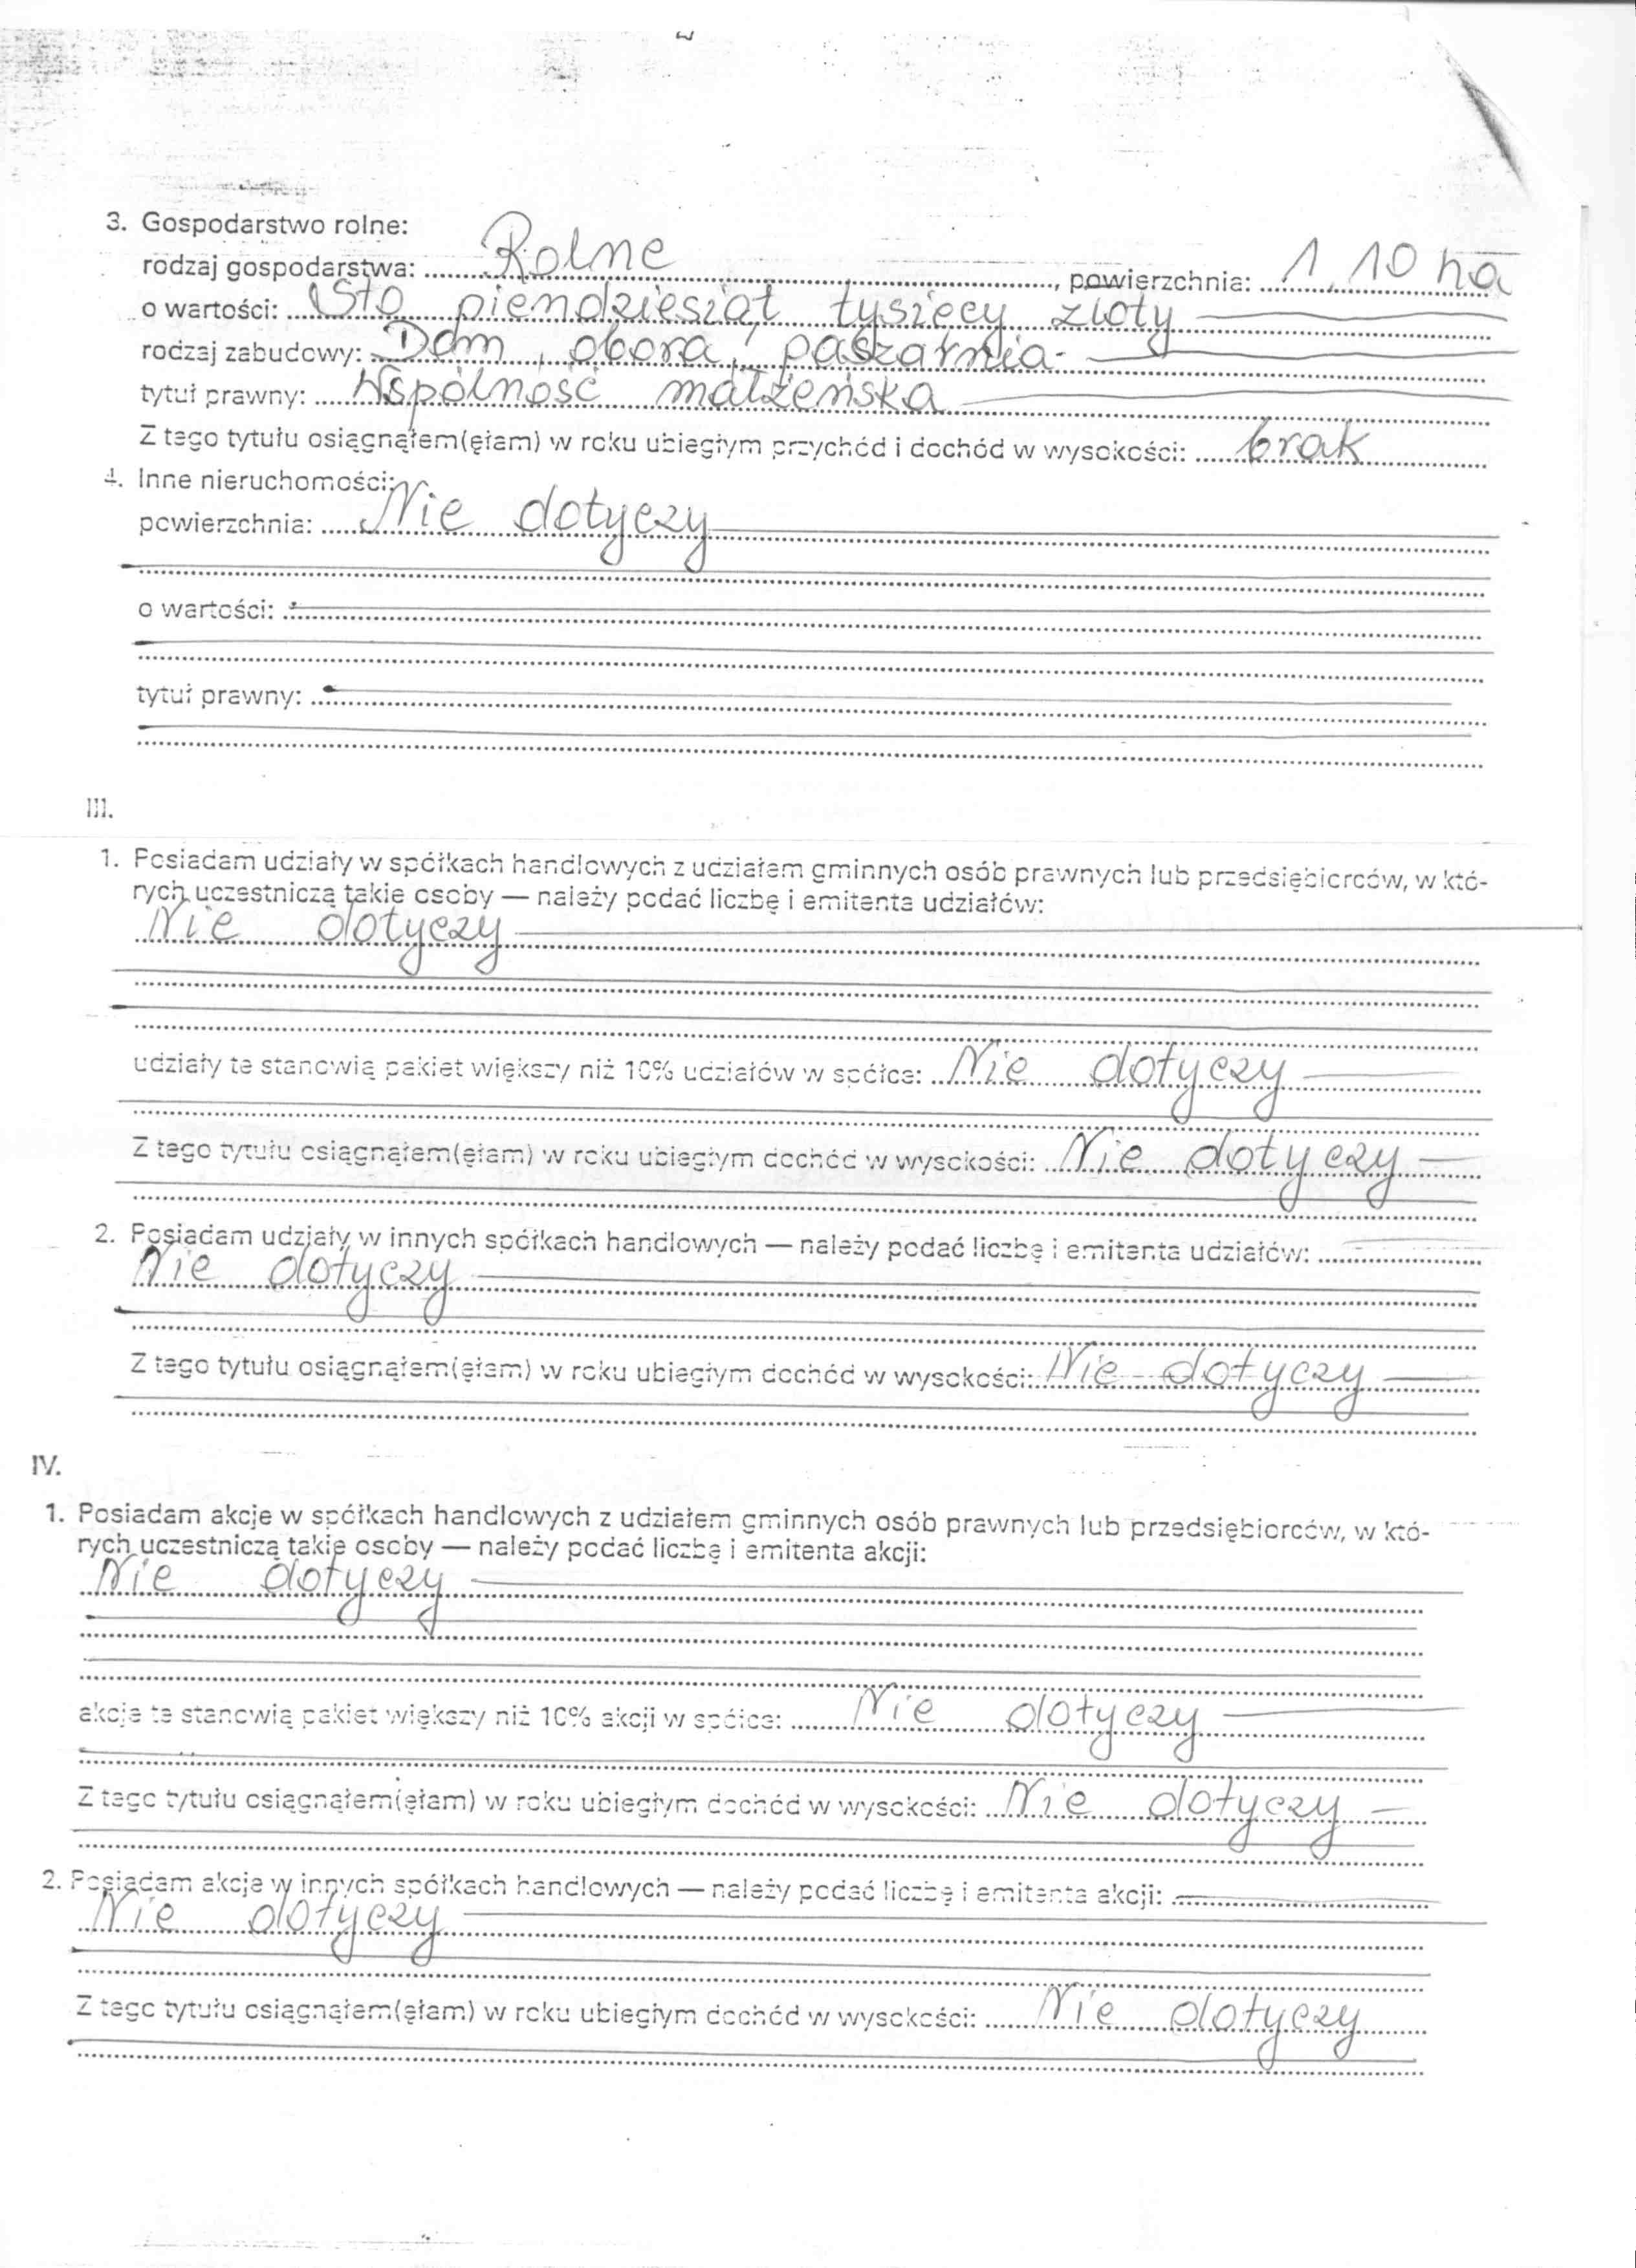 3. Gospodarstwo rolne:
rodzaj gospodarstwa: Rolne, powierzchnia: 1,10 ha
o wartości: Sto piendziesiąt tysięcy złoty
rodzaj zabudowy: Dom, obora, paszarnia
tytuł prawny: Wspólność małżeńska
Z tego tytułu osiągnąłem(ęłam) w roku ubiegłym przychód i dochód w wysokości: brak
4. Inne nieruchomości:
powierzchnia: Nie dotyczy
o wartości:
tytuł prawny:
III.
1. Posiadam udziały w spółkach handlowych z udziałem gminnych osób prawnych lub przedsiębiorców, w któ-
rych uczestniczą takie osoby — należy podać liczbę i emitenta udziałów:
Nie dotyczy
udziały te stanowią pakiet większy niż 10% udziałów w spółce: Nie dotyczy
Z tego tytułu osiągnąłem(ęłam) w roku ubiegłym dochód w wysokości: Nie dotyczy
2. Posiadam udziały w innych spółkach handlowych — należy podać liczbę i emitenta udziałów:
Nie dotyczy
Z tego tytułu osiągnąłem(ęłam) w roku ubiegłym dochód w wysokości: Nie dotyczy
IV.
1. Posiadam akcje w spółkach handlowych z udziałem gminnych osób prawnych lub przedsiębiorców, w któ-
rych uczestniczą takie osoby — należy podać liczbę i emitenta akcji:
Nie dotyczy
akcje te stanowią pakiet większy niż 10% akcji w spółce: Nie dotyczy
Z tego tytułu osiągnąłem(ęłam) w roku ubiegłym dochód w wysokości: Nie dotyczy
2. Posiadam akcje w innych spółkach handlowych — należy podać liczbę i emitenta akcji:
Nie dotyczy
Z tego tytułu osiągnąłem(ęłam) w roku ubiegłym dochód w wysokości: Nie dotyczy